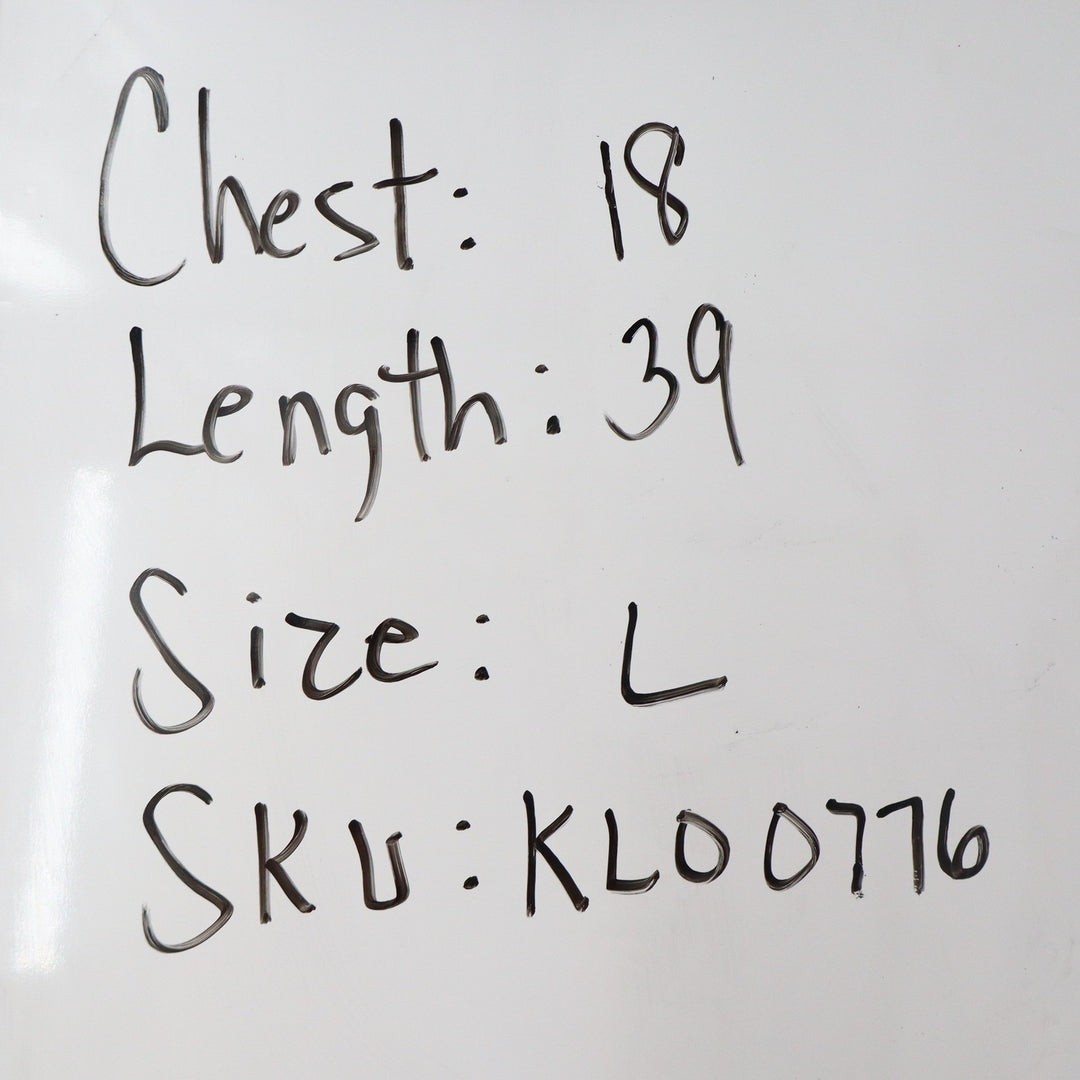 Chest: 18
Length: 39
Size: L
SKU: KL00776